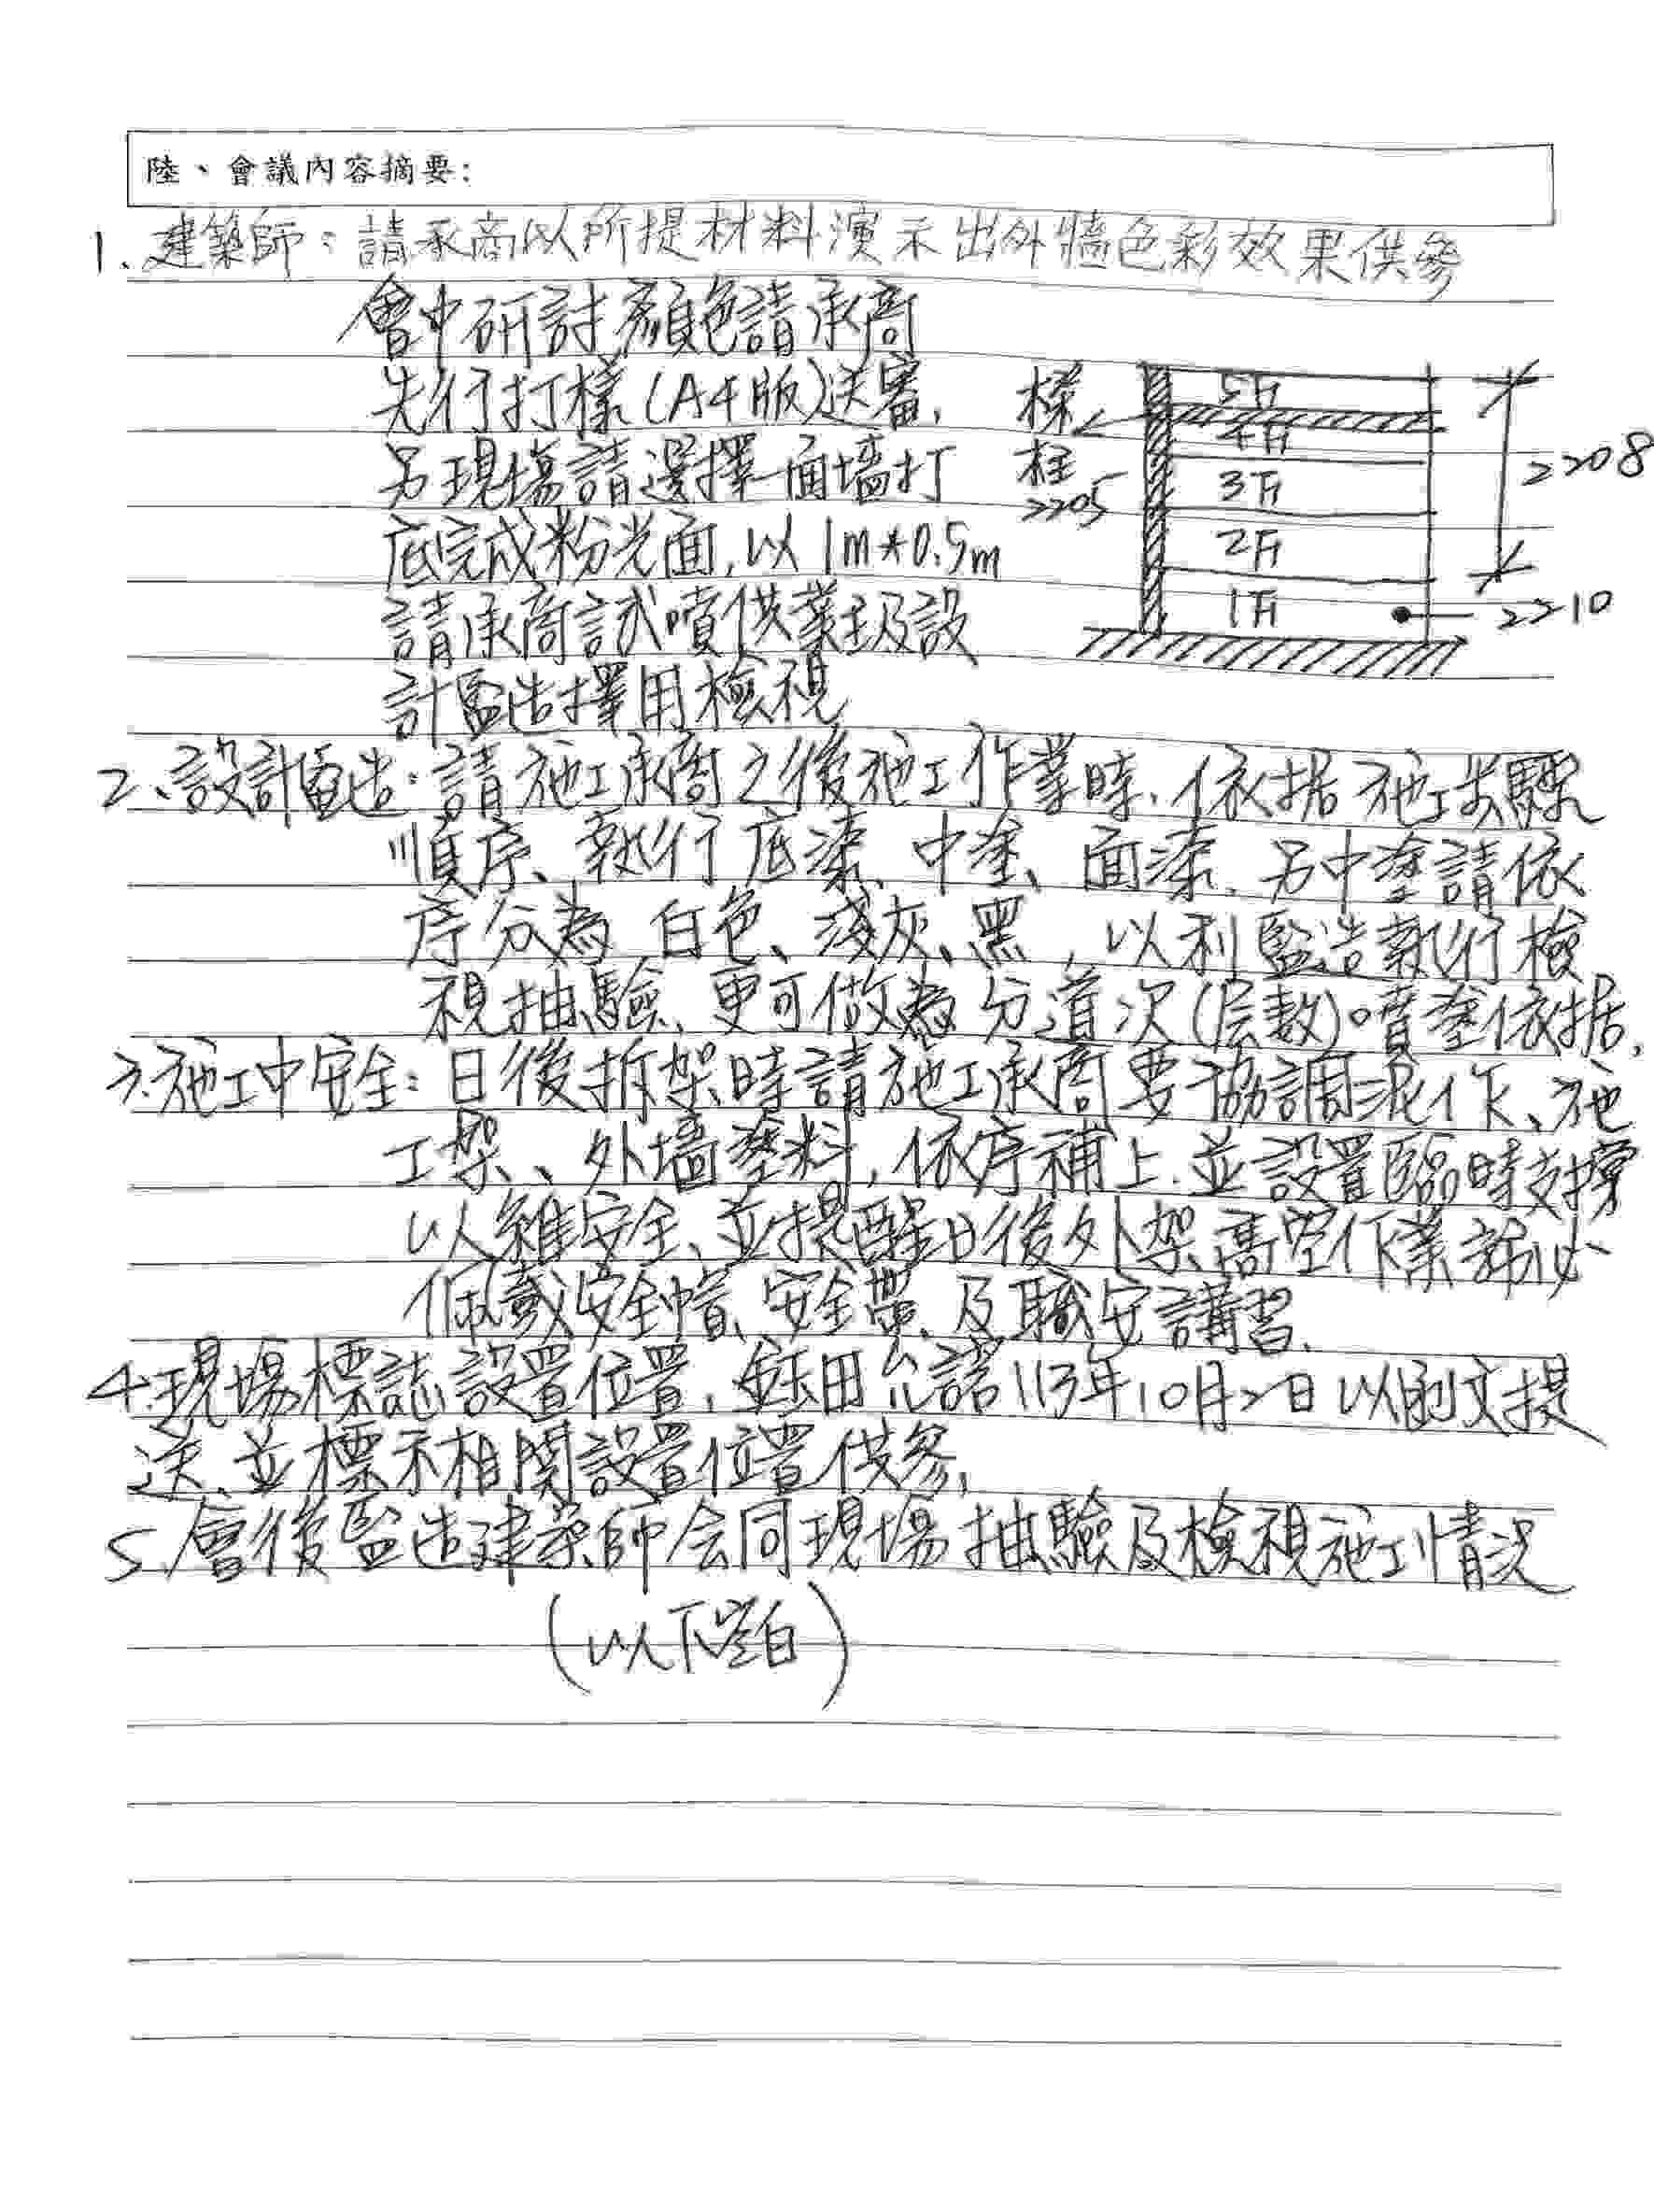 陸、會議內容摘要:
1、建築師:請承商以所提材料演示出外牆色彩效果供參
會中研討顏色請承商
先行打樣(A4版)送審,
另現場請選擇一面墻打
底完成粉光面,以1m*0.5m
請承商試噴供業主及設
計監造擇用檢視
樑
柱
2205
5F
4F
3F
2F
1F
2208
2210
2、設計監造:請施工承商之後施工作業時,依据施工步驟
順序、執行底漆、中塗、面漆,另中塗請依
序分為白色、淺灰、黑,以利監造執行檢
視抽驗,更可做為分道次(层數)噴塗依据,
3.施工中安全:日後拆架時請施工承商要協調泥作、施
工架、外墙塗料,依序補上.並設置臨時支撐
以維安全、並提醒日後外架高空作業務必
佩戴安全帽、安全帶、及職安講習.
4.現場標誌設置位置,允諾113年10月2日以前文提
送、並標示相関設置位置供參,
5.會後監造建築師会同現場抽驗及檢視施工情況
(以下空白)